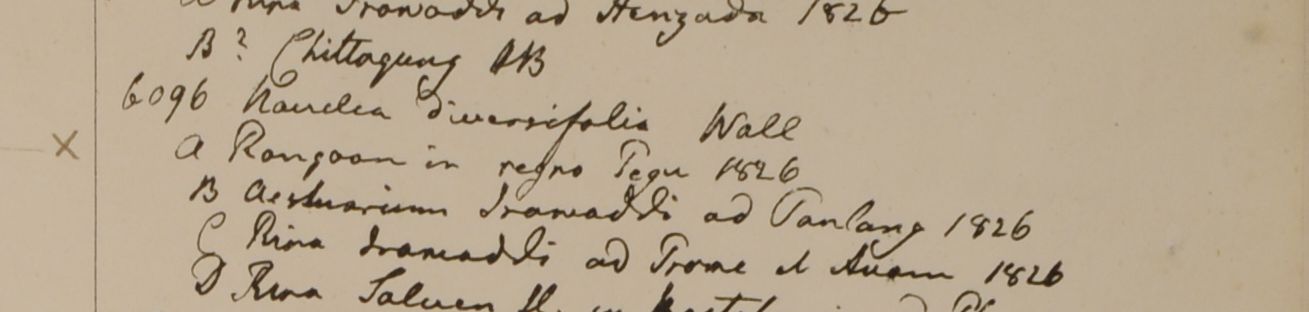 Ripa Irawaddi ad Henzada 1826
B? Chittagung HB
6096 Nauclea diversifolia Wall
A Rangoon in regno Pegu 1826
B Aestuarium Irawaddi ad Panlang 1826
C Ripa Irawaddi ad Prome et Avam 1826
D Ripa Saluen fl. in